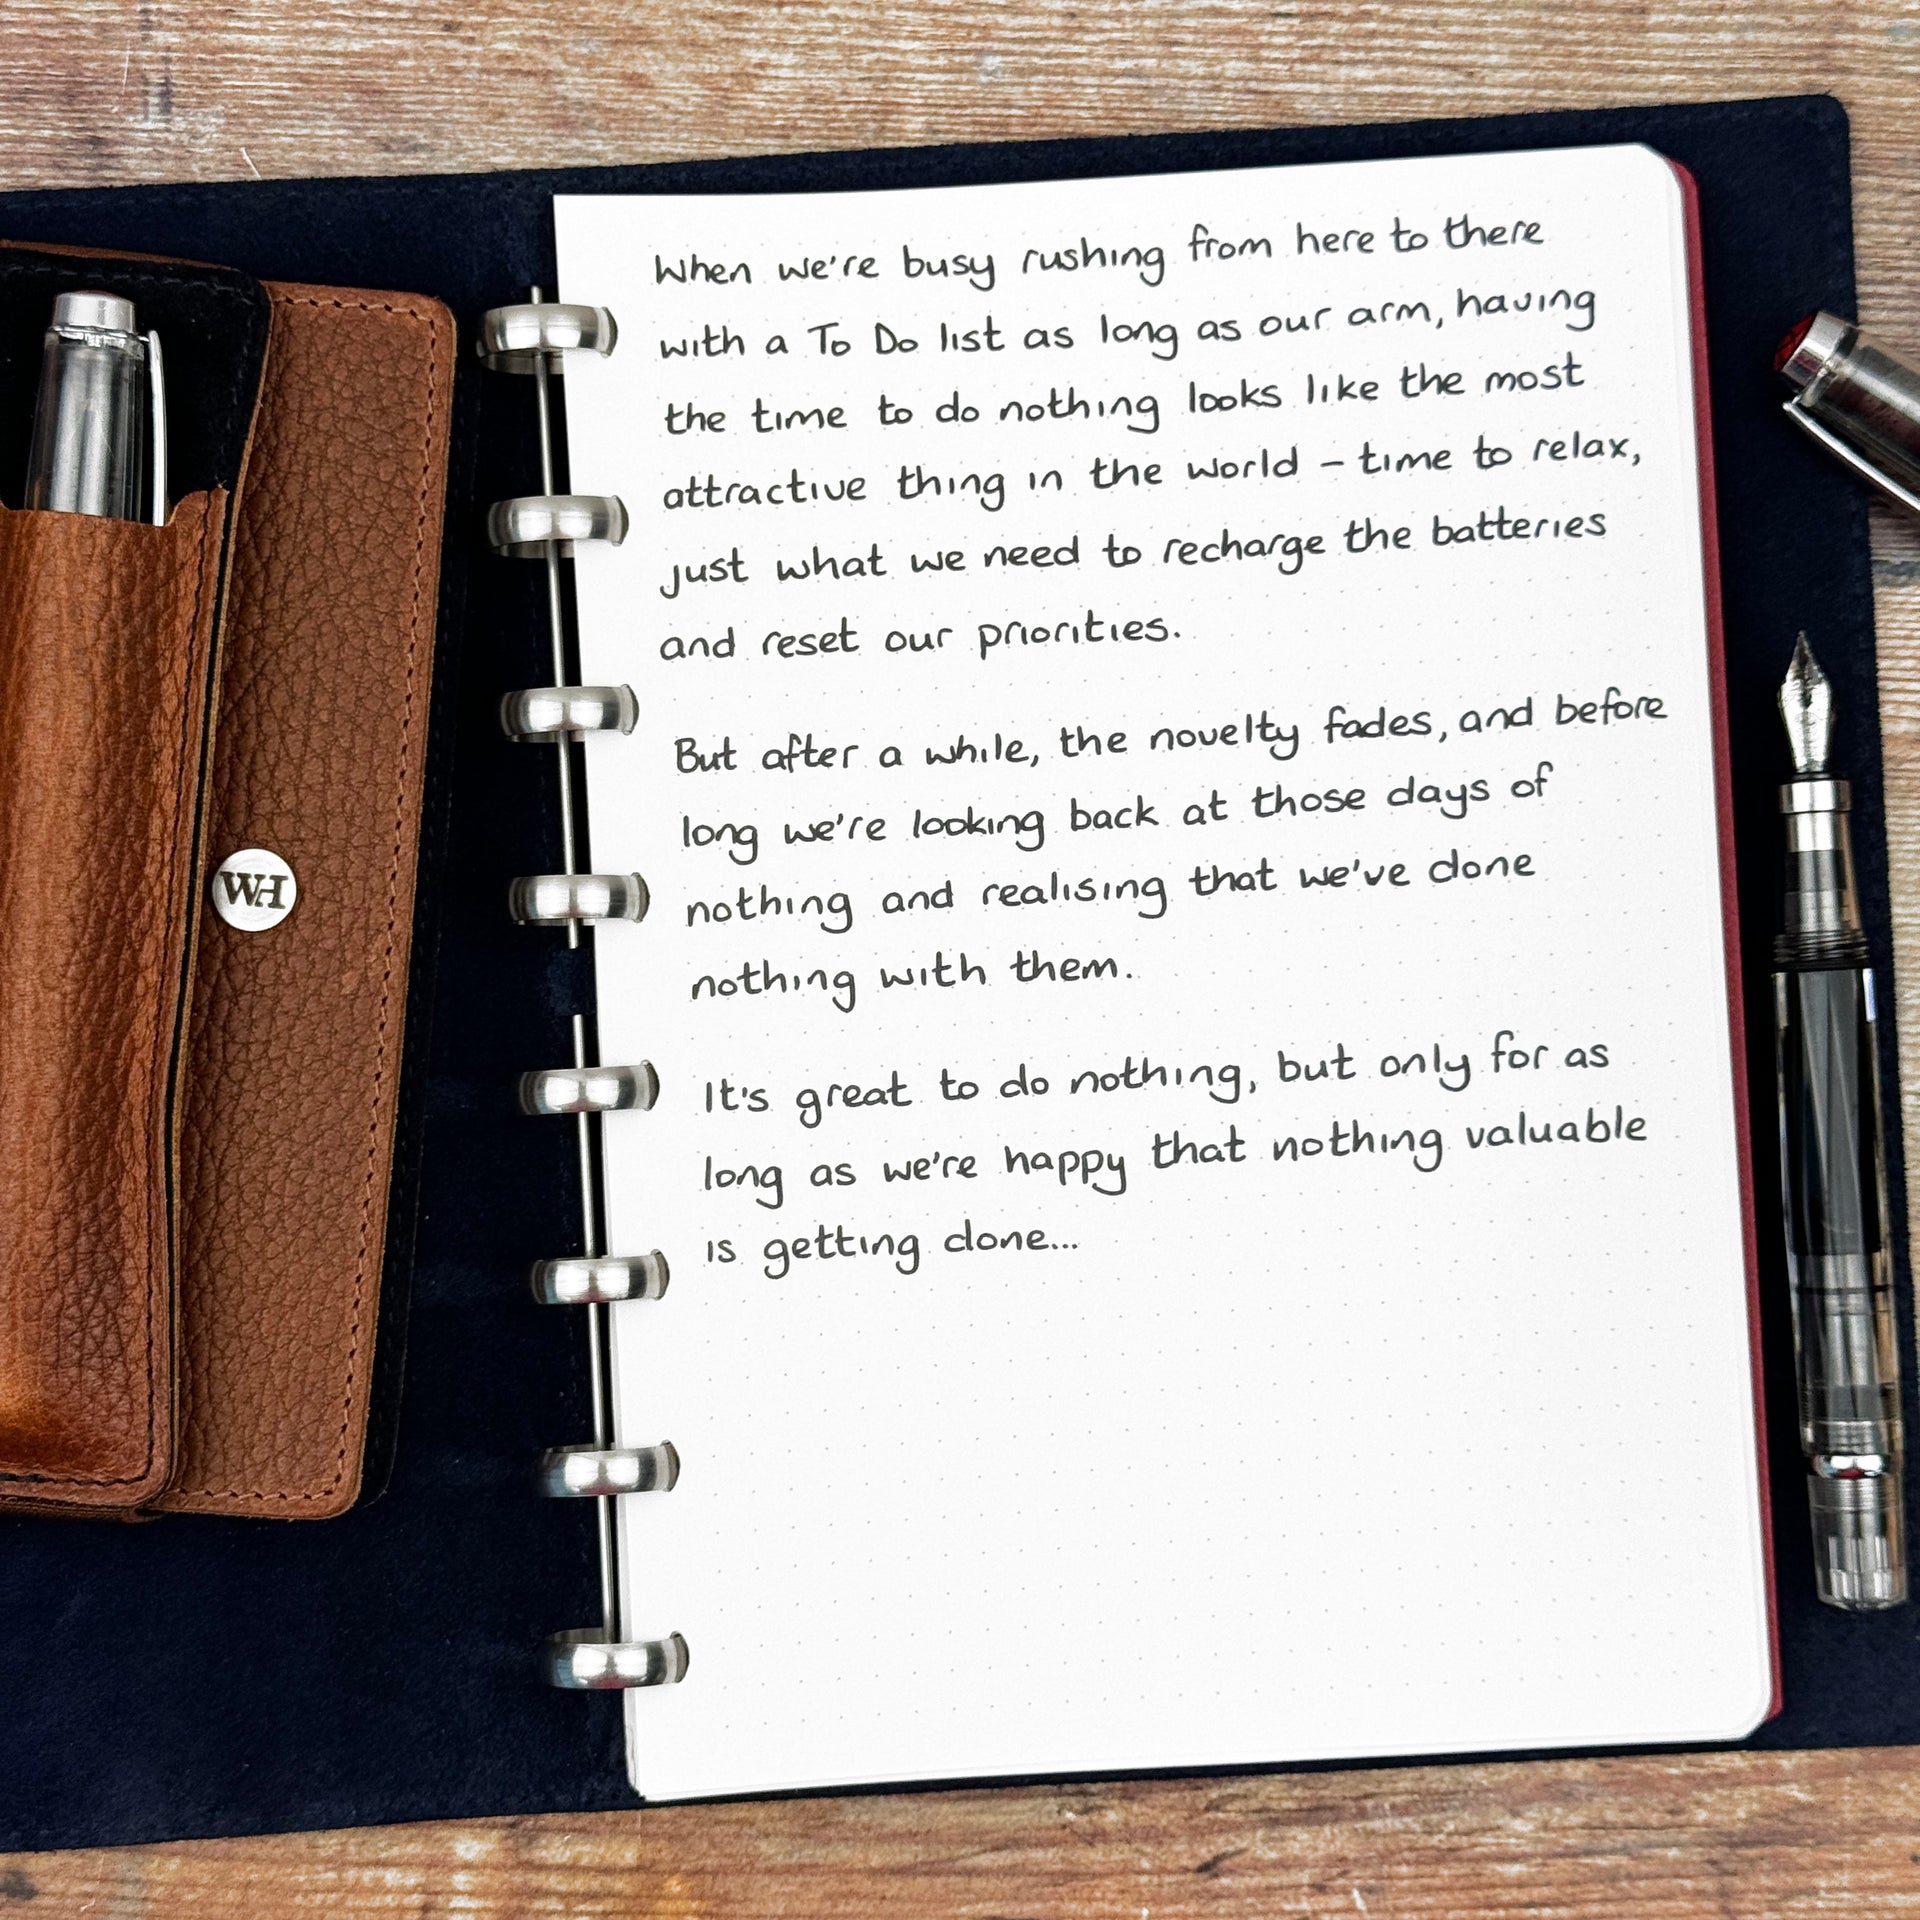 When we're busy rushing from here to there
with a To Do list as long as our arm, having
the time to do nothing looks like the most
attractive thing in the world – time to relax,
just what we need to recharge the batteries
and reset our priorities.
But after a while, the novelty fades, and before
long we're looking back at those days of
nothing and realising that we've done
nothing with them.
It's great to do nothing, but only for as
long as we're happy that nothing valuable
is getting done...
WH